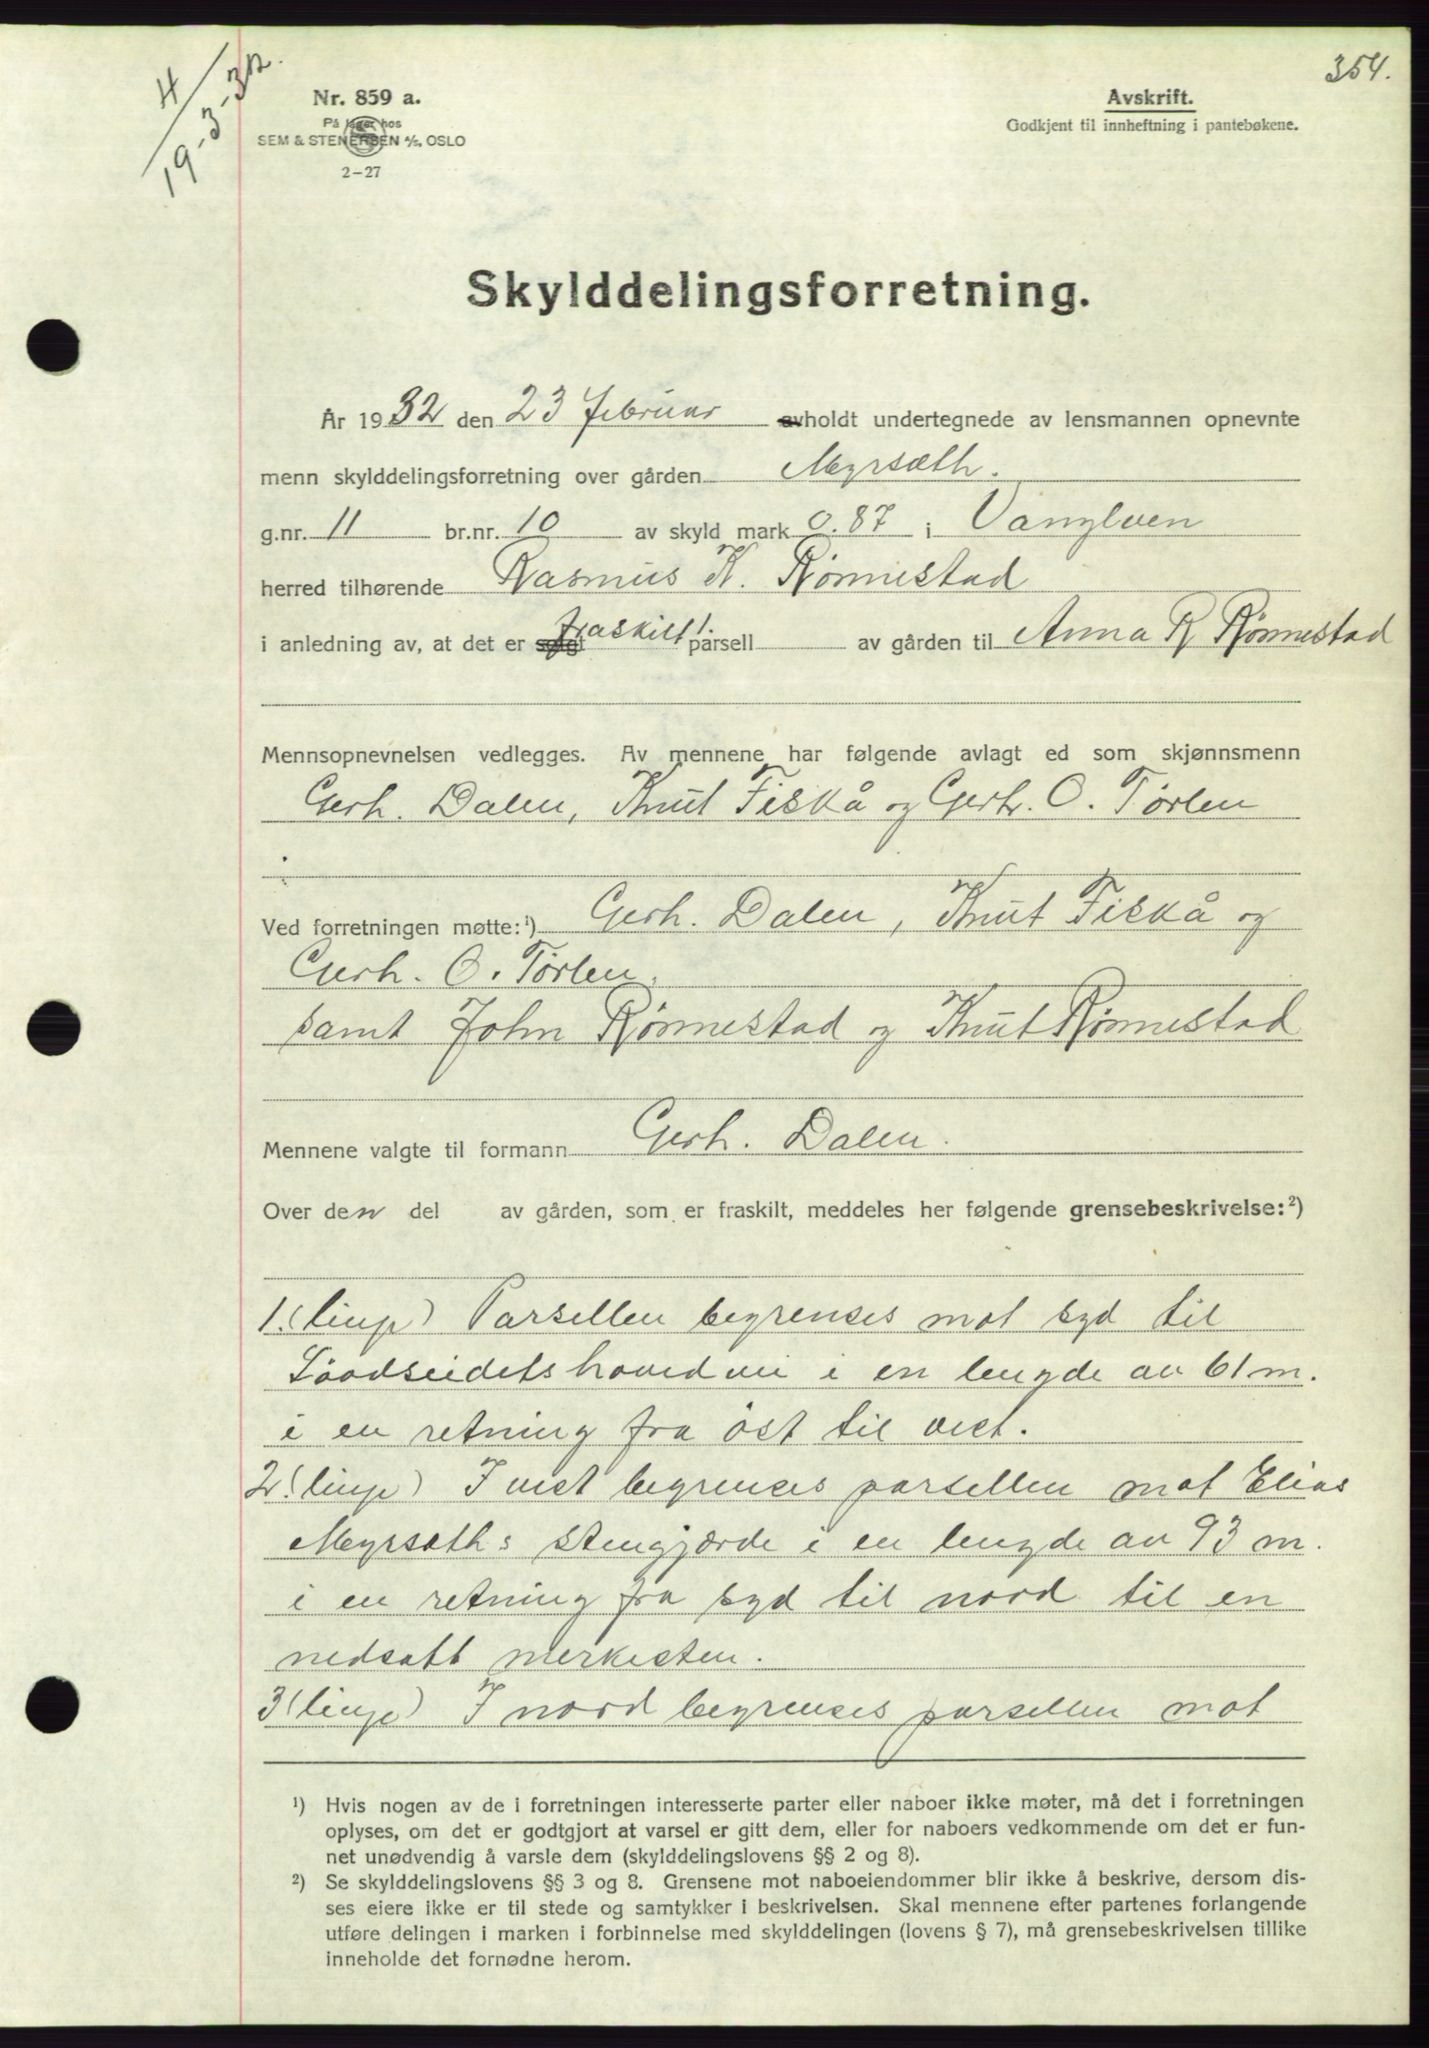 354.
4/19-3-32.
Nr. 859 a.
På lager hos
SEM & STENERSEN A/S, OSLO
2-27
Avskrift.
Godkjent til innheftning i pantebøkene.
Skylddelingsforretning.
År 1932 den 23 Februar avholdt undertegnede av lensmannen opnevnte
menn skylddelingsforretning over gården Myrsæth.
g.nr. 11 br.nr. 10 av skyld mark 0.87 i Vanylven
herred tilhørende Rasmus K. Rønnestad
i anledning av, at det er solgt fraskilt 1 parsell av gården til Anna R Rønnestad
Mennsopnevnelsen vedlegges. Av mennene har følgende avlagt ed som skjønnsmenn
Gerh. Dalen, Knut Fiskå og Gerh. O. Tørlen
Ved forretningen møtte:¹) Gerh. Dalen, Knut Fiskå og
Gerh. O. Tørlen.
samt John Rønnestad og Knut Rønnestad
Mennene valgte til formann Gerh. Dalen.
Over den del av gården, som er fraskilt, meddeles her følgende grensebeskrivelse:²)
1. (linje) Parsellen begrenses mot syd til
hovedvei i en lengde av 61 m.
i en retning fra øst til vest.
2. (linje) I vest begrenses parsellen mot Elias
Myrsæth's stengjærde i en lengde av 93 m.
i en retning fra syd til nord til en
nedsatt merkesten.
3 (linje) I nord begrenses parsellen mot
¹) Hvis nogen av de i forretningen interesserte parter eller naboer ikke møter, må det i forretningen
oplyses, om det er godtgjort at varsel er gitt dem, eller for naboers vedkommende om det er fun-
net unødvendig å varsle dem (skylddelingslovens §§ 2 og 8).
²) Se skylddelingslovens §§ 3 og 8. Grensene mot naboeiendommer blir ikke å beskrive, dersom dis-
ses eiere ikke er til stede og samtykker i beskrivelsen. Skal mennene efter partenes forlangende
utføre delingen i marken i forbinnelse med skylddelingen (lovens § 7), må grensebeskrivelsen tillike
inneholde det fornødne herom.